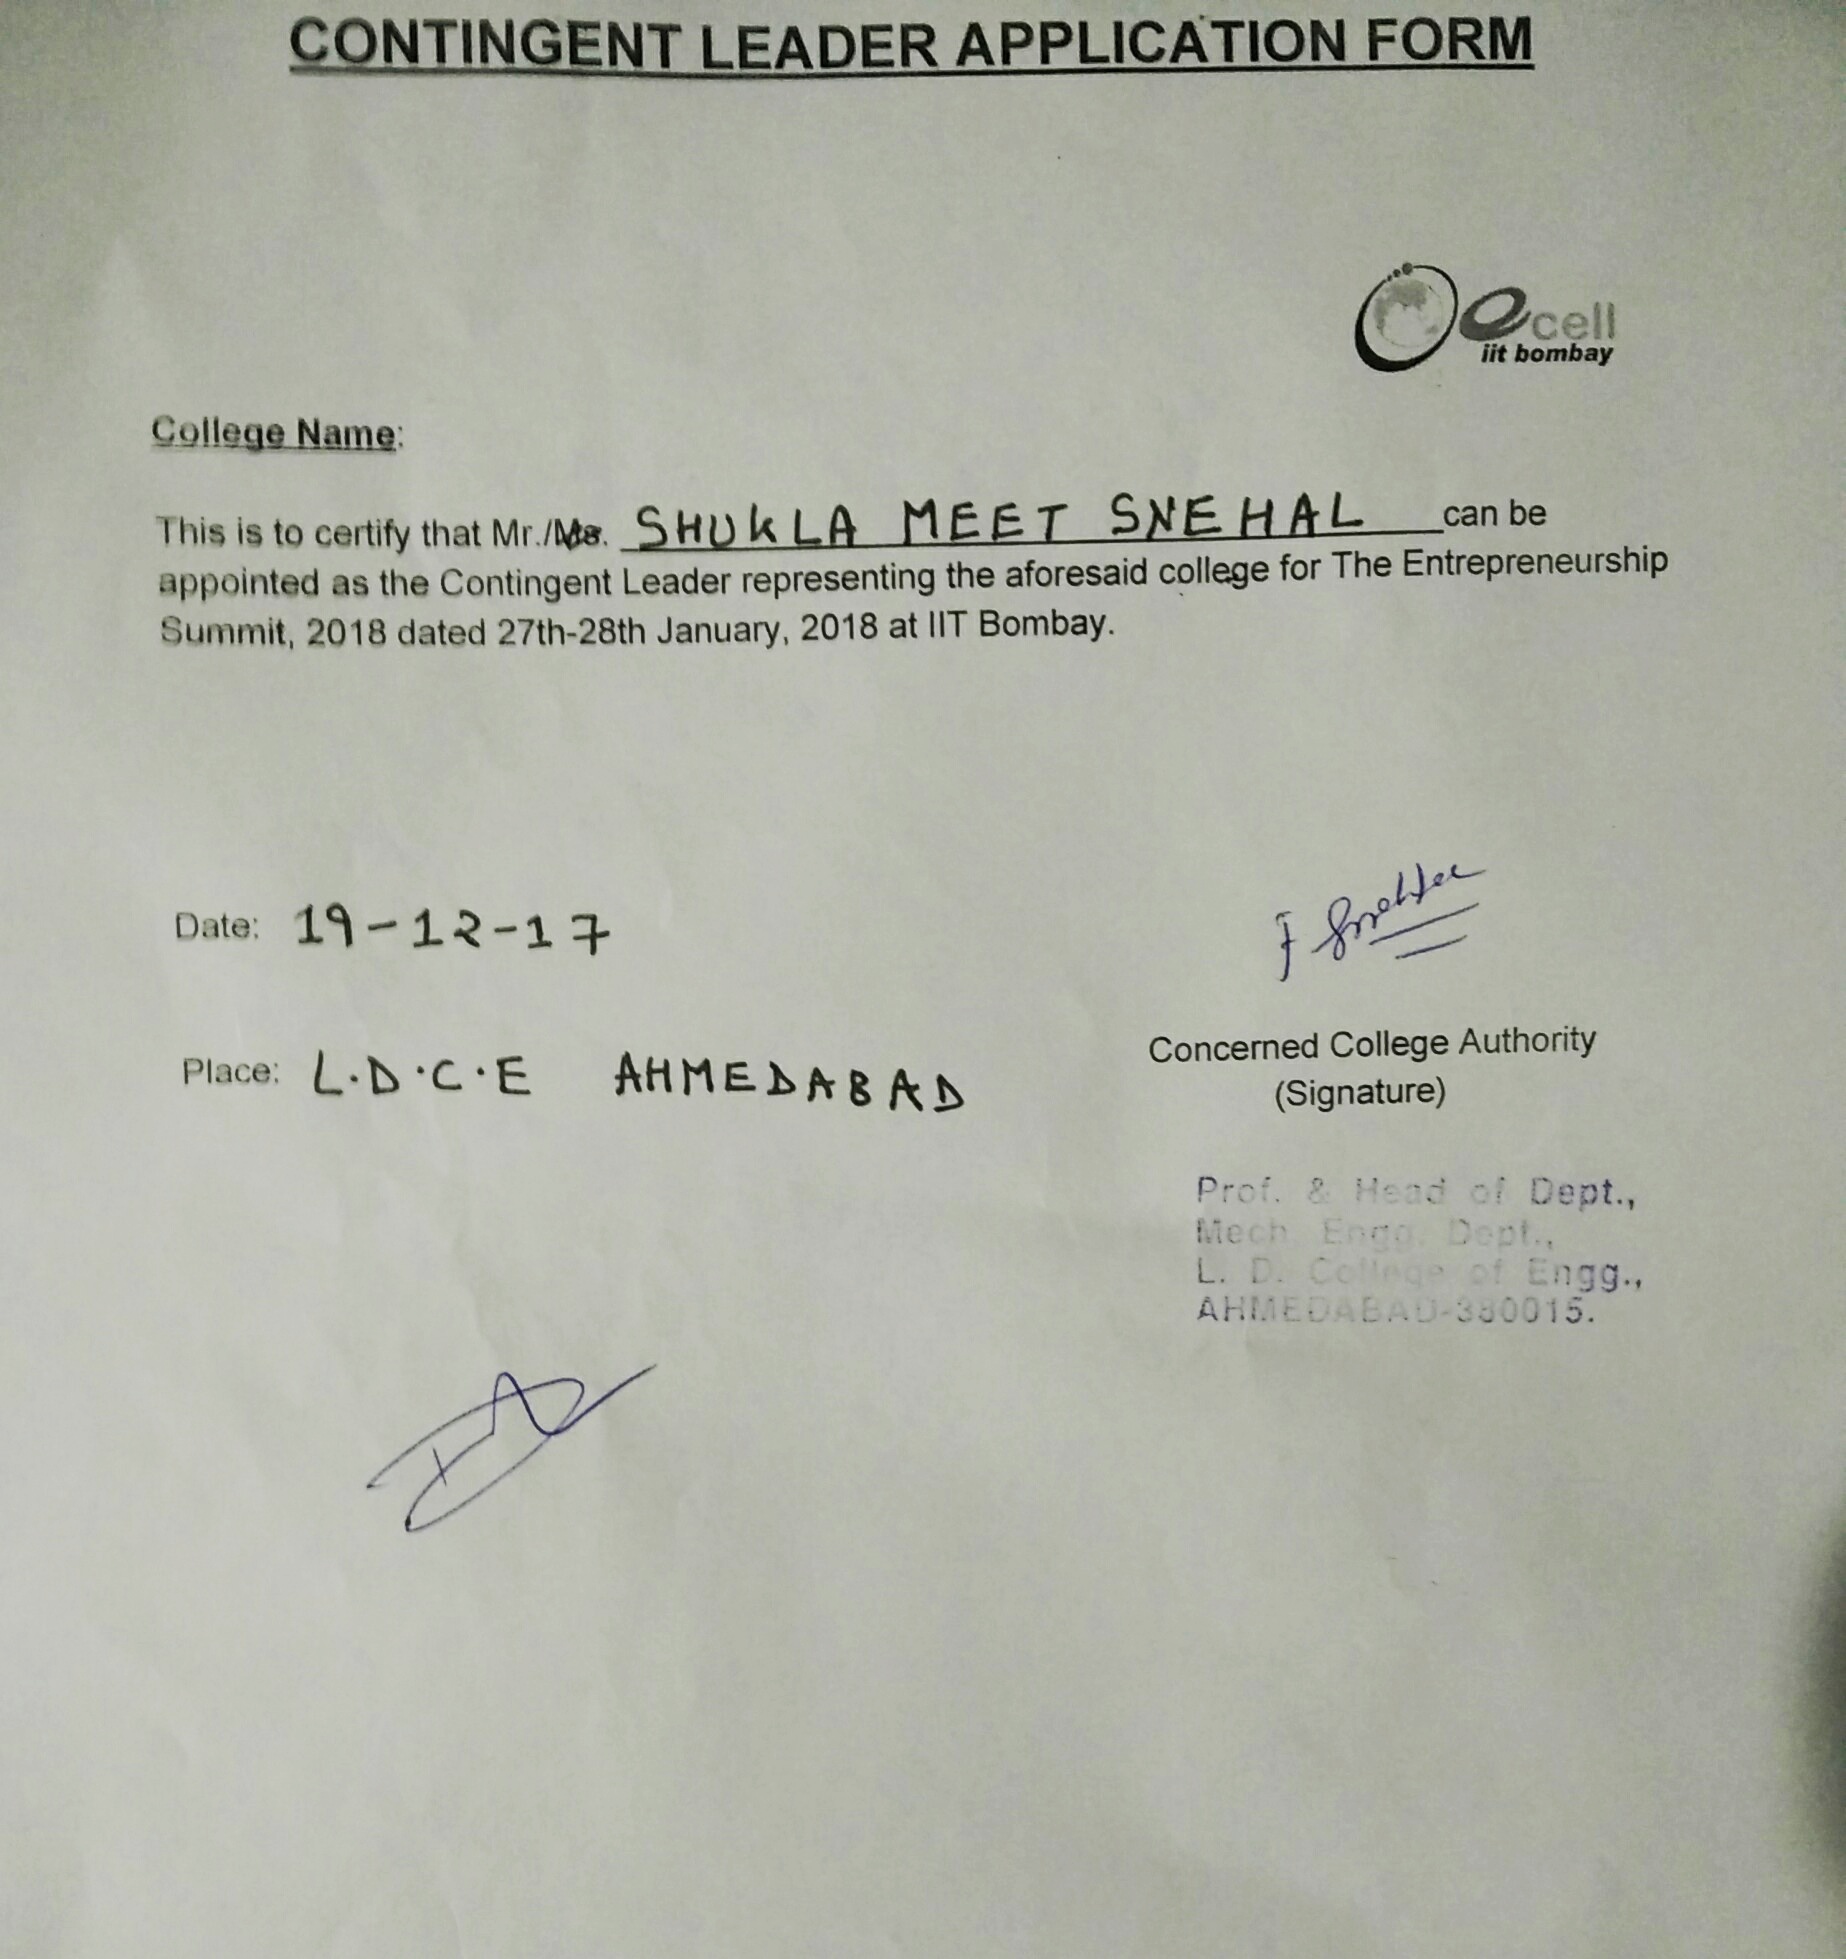 CONTINGENT LEADER APPLICATION FORM
ecell
iit bombay
College Name:
This is to certify that Mr./Ms. SHUKLA MEET SNEHAL can be
appointed as the Contingent Leader representing the aforesaid college for The Entrepreneurship
Summit, 2018 dated 27th-28th January, 2018 at IIT Bombay.
Date: 19-12-17
Place: L.D.C.E AHMEDABAD
Concerned College Authority
(Signature)
Prof. & Head of Dept.,
Mech. Engg. Dept.,
L. D. College of Engg.,
AHMEDABAD-380015.